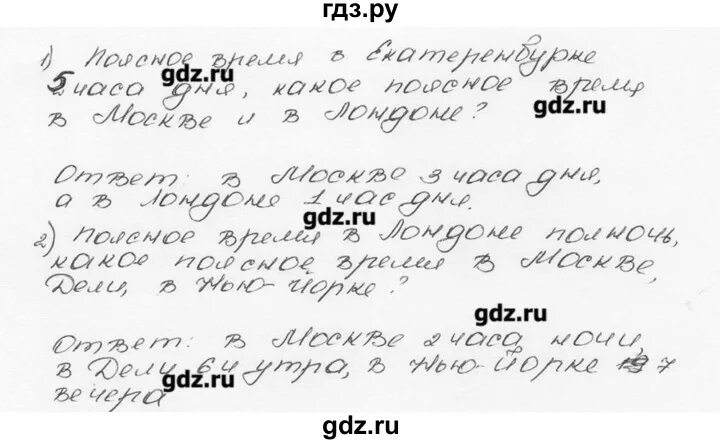 гдз.ру
1) Поясное время в Екатеренбурке
gdz.ru
5 часа дня, какое поясное время
gdz.ru
в Москве и в Лондоне?
Ответ: в Москве 3 часа дня,
а в Лондоне 1 час дня.
gdz.ru
2) Поясное время в Лондоне полночь,
какое поясное время в Москве,
Дели, в Нью-Йорке?
gdz.ru
Ответ: в Москве 2 часа ночи,
в Дели 6 ч утра, в Нью-Йорке 7
gdz.ru
вечера
gdz.ru